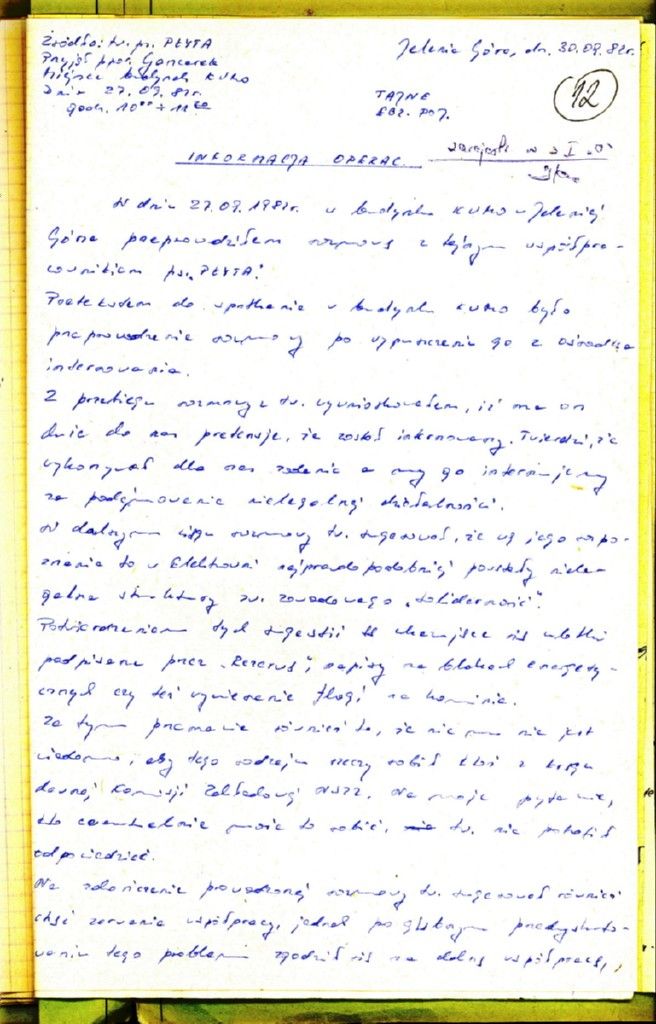 Źródło: tw. ps. PŁYTA
Przyjął ppor. Goncarek
Miejsce budynek KUMO
Dnia 27.09.82r.
godz. 10⁰⁰ ÷ 11²⁰
Jelenia Góra, dn. 30.09.82r.
TAJNE
EGZ. POJ.
12
INFORMACJA OPERAC.
W dniu 27.09.1982r. w budynku KUMO w Jeleniej
Górze przeprowadziłem rozmowę z tajnym współpra-
cownikiem ps. "PŁYTA".
Pretekstem do spotkania w budynku KUMO było
przeprowadzenie rozmowy po wypuszczeniu go z ośrodka
internowania.
Z przebiegu rozmowy z tw. wywnioskowałem, iż ma on
duże do nas pretensje, że został internowany. Twierdzi, że
wykonywał dla nas zadania a my go internujemy
za podejmowanie nielegalnej działalności.
W dalszym ciągu rozmowy tw. sugerował, że wg jego rozpo-
znania to w Elektrowni najprawdopodobniej powstały niele-
galne struktury zw. zawodowego "Solidarność".
Potwierdzeniem tych sugestii są ukazujące się ulotki
podpisane przez "Rezerwę", napisy na blokach energety-
cznych czy też wywieszenie flagi na kominie.
Za tym przemawia również to, że nic mu nie jest
wiadomo, aby tego rodzaju rzeczy robił ktoś z kręgu
dawnej Komisji Zakładowej NSZZ. Na moje pytanie,
kto ewentualnie może to robić, tw. nie potrafił
odpowiedzieć.
Na zakończenie prowadzonej rozmowy tw. sugerował również
chęć zerwania współpracy, jednak po głębszym przedyskuto-
waniu tego problemu zgodził się na dalszą współpracę,